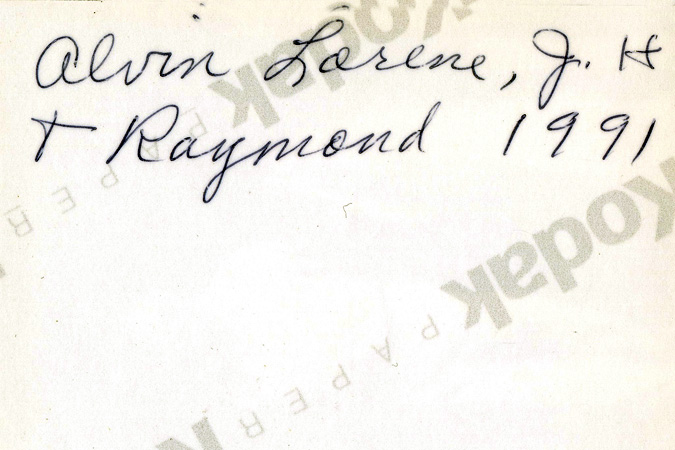 Alvin Lorene, J. H
+ Raymond 1991
Kodak
PAPER
Kodak
PAPER